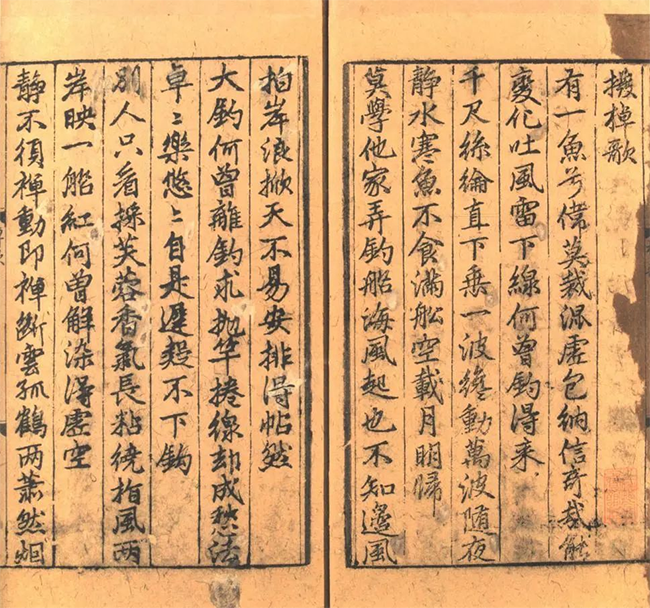 撥棹歌
有一魚兮偉莫裁混虛包納信奇哉能
變化吐風雷下線何曾釣得来
千尺絲綸直下垂一波纔動萬波随夜
静水寒魚不食滿舩空載月明歸
莫學他家弄釣船海風起也不知邊風
拍岸浪掀天不易安排得帖然
大釣何曾離釣求抛竿捲線却成愁法
卓〻樂悠〻自是遲疑不下鈎
別人只看採芙蓉香氣長粘繞指風兩
岸映一船紅何曾解染得虛空
静不須禪動即禪斷雲孤鶴兩蕭然烟